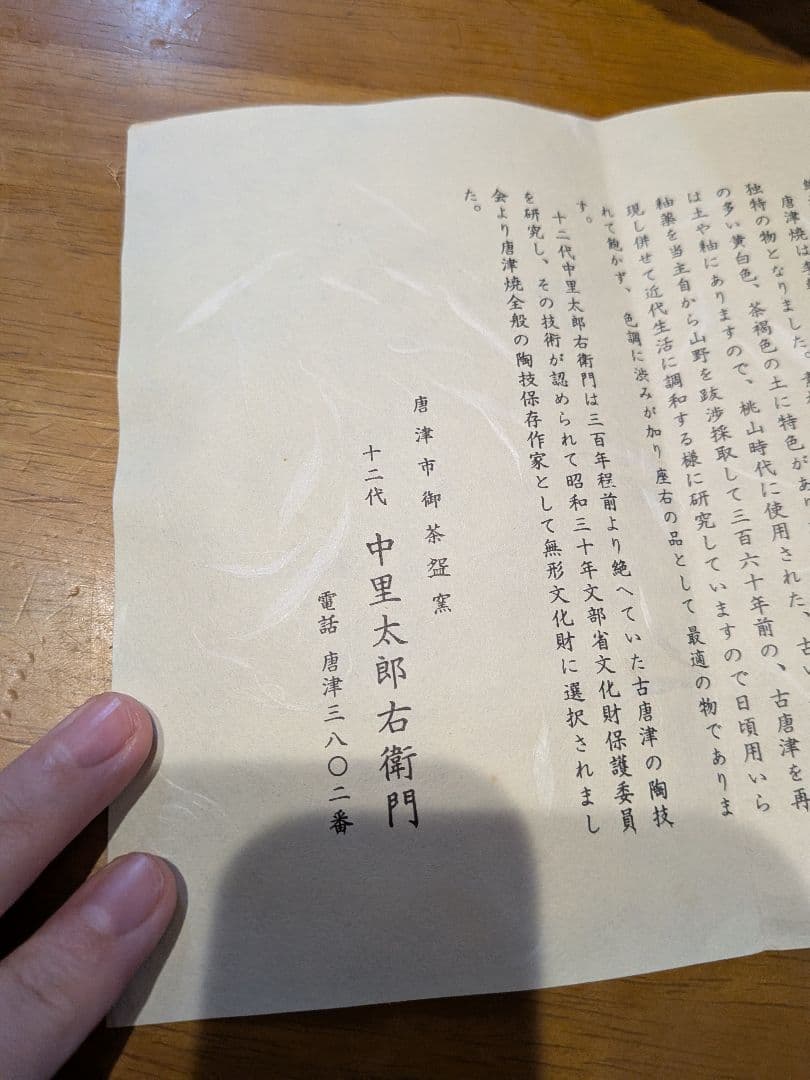 唐津焼は
独特の物となりました。
の多い黄白色、茶褐色の土に特色があり
は土や釉にありますので、桃山時代に使用された、古い
釉薬を当主自から山野を跋渉採取して三百六十年前の、古唐津を再
現し併せて近代生活に調和する様に研究していますので日頃用いら
れて飽かず、色調に渋みが加り座右の品として最適の物でありま
す。
十二代中里太郎右衛門は三百年程前より絶へていた古唐津の陶技
を研究し、その技術が認められて昭和三十年文部省文化財保護委員
会より唐津焼全般の陶技保存作家として無形文化財に選択されまし
た。
唐津市御茶盌窯
十二代 中里太郎右衛門
電話 唐津三八〇二番